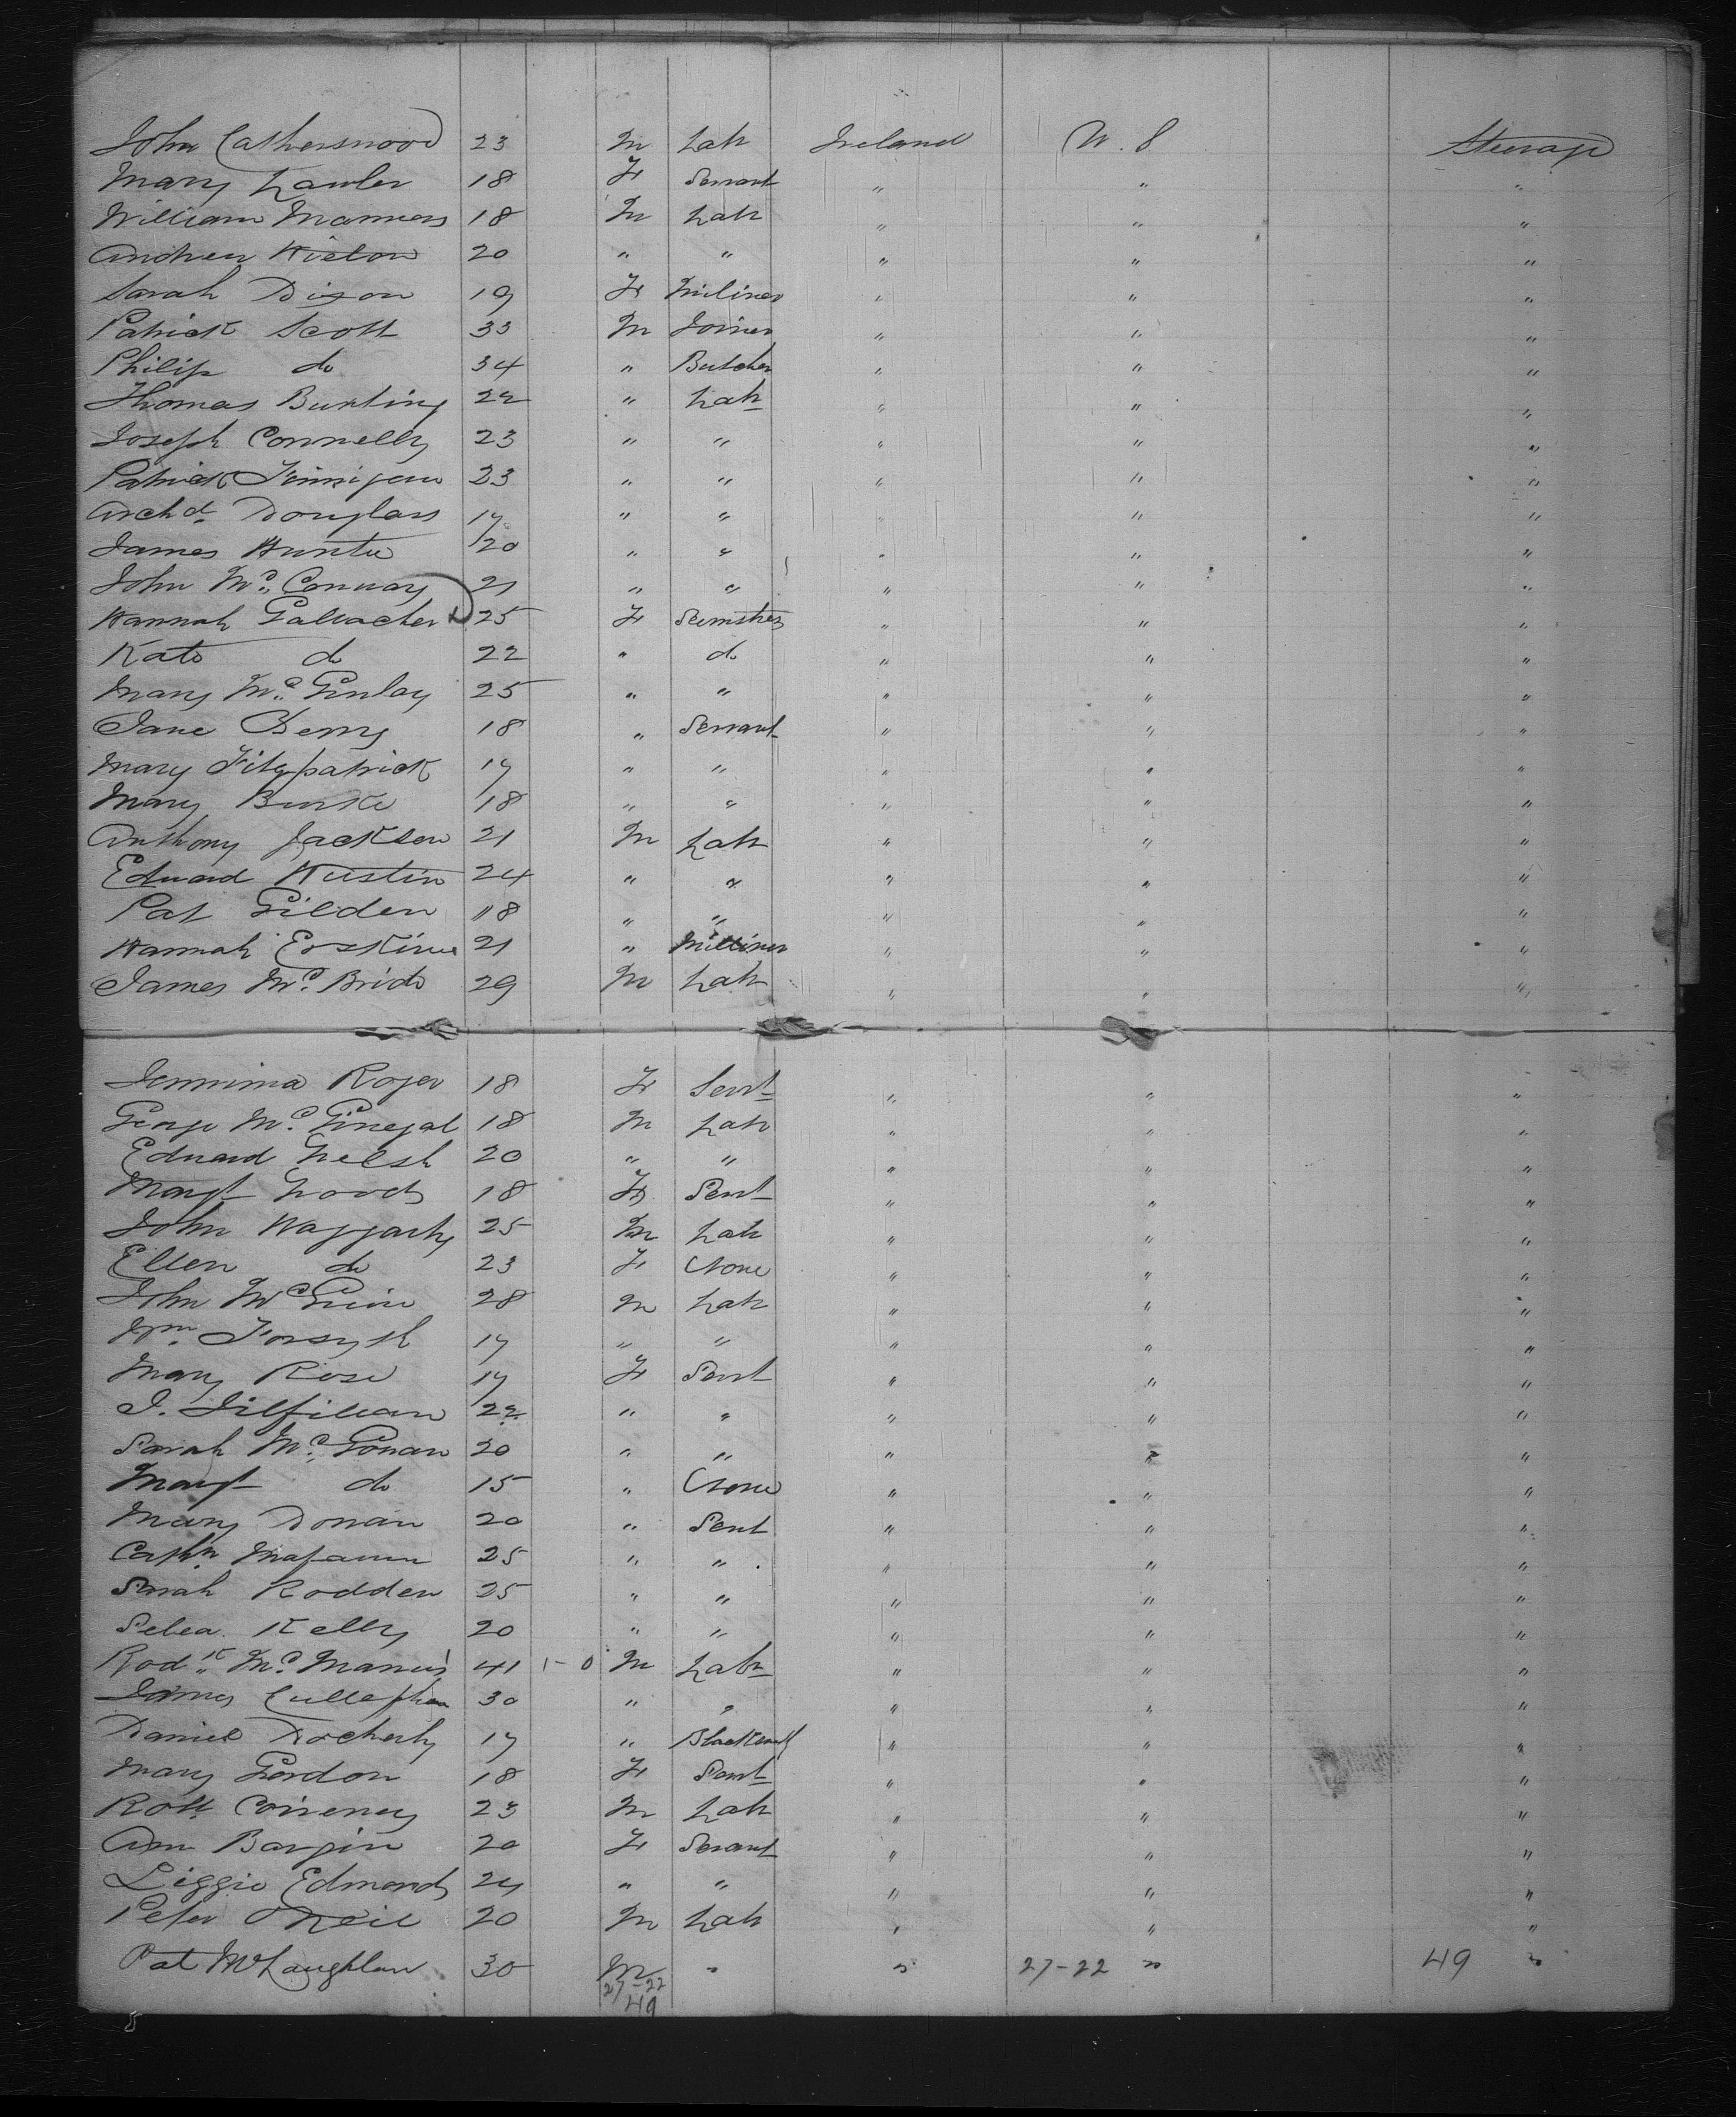 John Catherswood 23 M Labr Ireland U.S Steerage
Mary Lawler 18 F Servant " " "
William Manners 18 M Labr " " "
Andrew Histon 20 " " " " "
Sarah Dixon 19 F Miliner " " "
Patrick Scott 33 M Joiner " " "
Philip do 34 " Butcher " " "
Thomas Bunting 22 " Labr " " "
Joseph Connelly 23 " " " " "
Patrick Finnigan 23 " " " " "
Archd. Douglass 17 " " " " "
James Hunter 20 " " " " "
John Mc Conway 21 " " " " "
Hannah Gallacher 25 F Seemstres " " "
Kate do 22 " do " " "
Mary Mc Ginlay 25 " " " " "
Jane Berry 18 " Servant " " "
Mary Fitzpatrick 17 " " " " "
Mary Burke 18 " " " " "
Anthony Jackson 21 M Labr " " "
Edward Hustin 24 " " " " "
Pat Gilden 18 " " " " "
Hannah Erskine 21 " Milliner " " "
James Mc Bride 29 M Labr " " "
Jemmima Roger 18 F Servt " " "
George Mc Ginegal 18 M Labr " " "
Edward Welsh 20 " " " " "
Margt Woods 18 F Servt " " "
John Haggarty 25 M Labr " " "
Ellen do 23 F None " " "
John McGuire 28 M Labr " " "
Wm. Forsyth 17 " " " " "
Mary Rose 17 F Servt " " "
J. Gilfillean 22 " " " " "
Sarah Mc Gowan 20 " " " " "
Margt do 15 " None " " "
Mary Donan 20 " Servt " " "
Cathn 25 " " " " "
Sarah Rodden 25 " " " " "
Kelly 20 " " " " "
Rodk Mc Manus 41 1-0 M Labr " " "
James 30 " " " " "
Daniel Docherty 17 " Blacksmith " " "
Mary Gordon 18 F Servt " " "
Robt 23 M Labr " " "
Ann Bargin 20 F Servant " " "
Lizzie Edmonds 24 " " " " "
Peter O'Neil 20 M Labr " " "
Pat McLaughlan 30 M " " 27-22 " 49 "
27-22
49